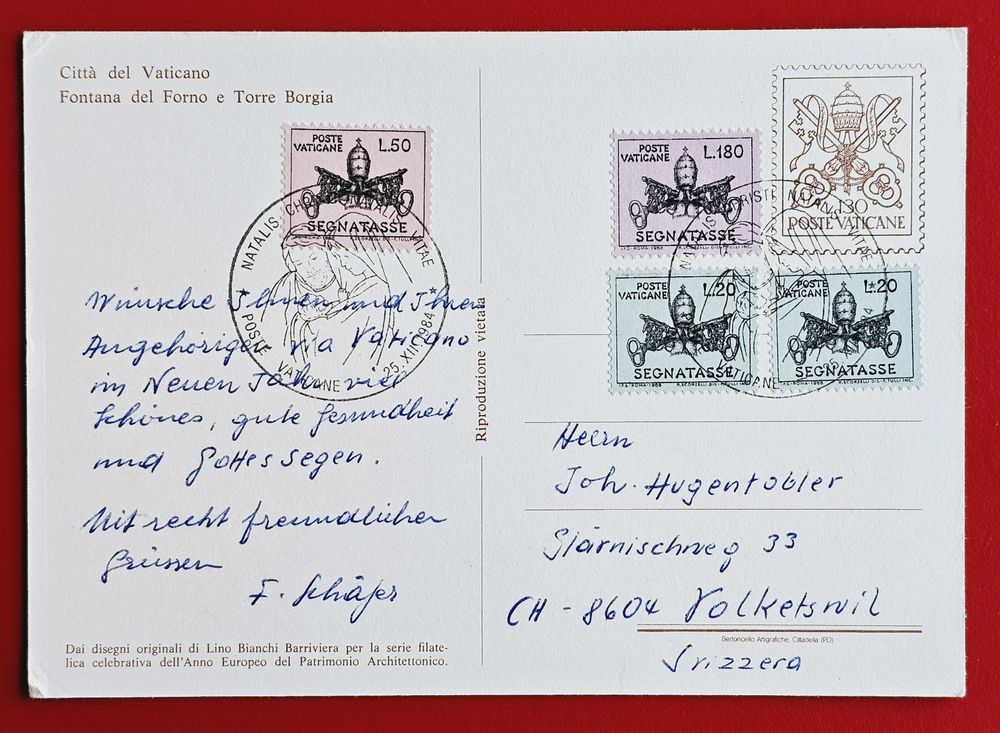 Città del Vaticano
Fontana del Forno e Torre Borgia
POSTE
VATICANE
L.50
SEGNATASSE
NATALIS CHRISTI NATALIS VITAE
* POSTE VATICANE * 25.XII.1984 *
Wünsche Ihnen und Ihren
Angehörigen via Vaticano
im Neuen Jahr viel
Schönes, gute Gesundheit
und Gottes segen.
Mit recht freundlichen
Grüssen
F. Schäfer
Dai disegni originali di Lino Bianchi Barriviera per la serie filate-
lica celebrativa dell'Anno Europeo del Patrimonio Architettonico.
Riproduzione vietata
POSTE
VATICANE
L.180
SEGNATASSE
I.P.S.-ROMA-1968
130
POSTE VATICANE
POSTE
VATICANE
L.20
SEGNATASSE
I.P.S.-ROMA-1968 R.SCORZELLI DIS.-E.TULLI INC.
POSTE
VATICANE
L.20
SEGNATASSE
I.P.S.-ROMA-1968 R.SCORZELLI DIS.-E.TULLI INC.
VATICANE
Herrn
Joh. Hugentobler
Glärnischweg 33
CH - 8604 Volketswil
Bertoncello Artigrafiche, Cittadella (PD)
Svizzera